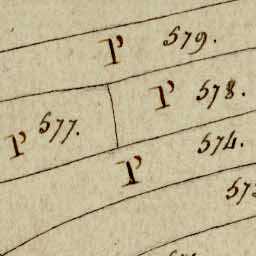 P 579.
P 578.
P 577.
P 574.